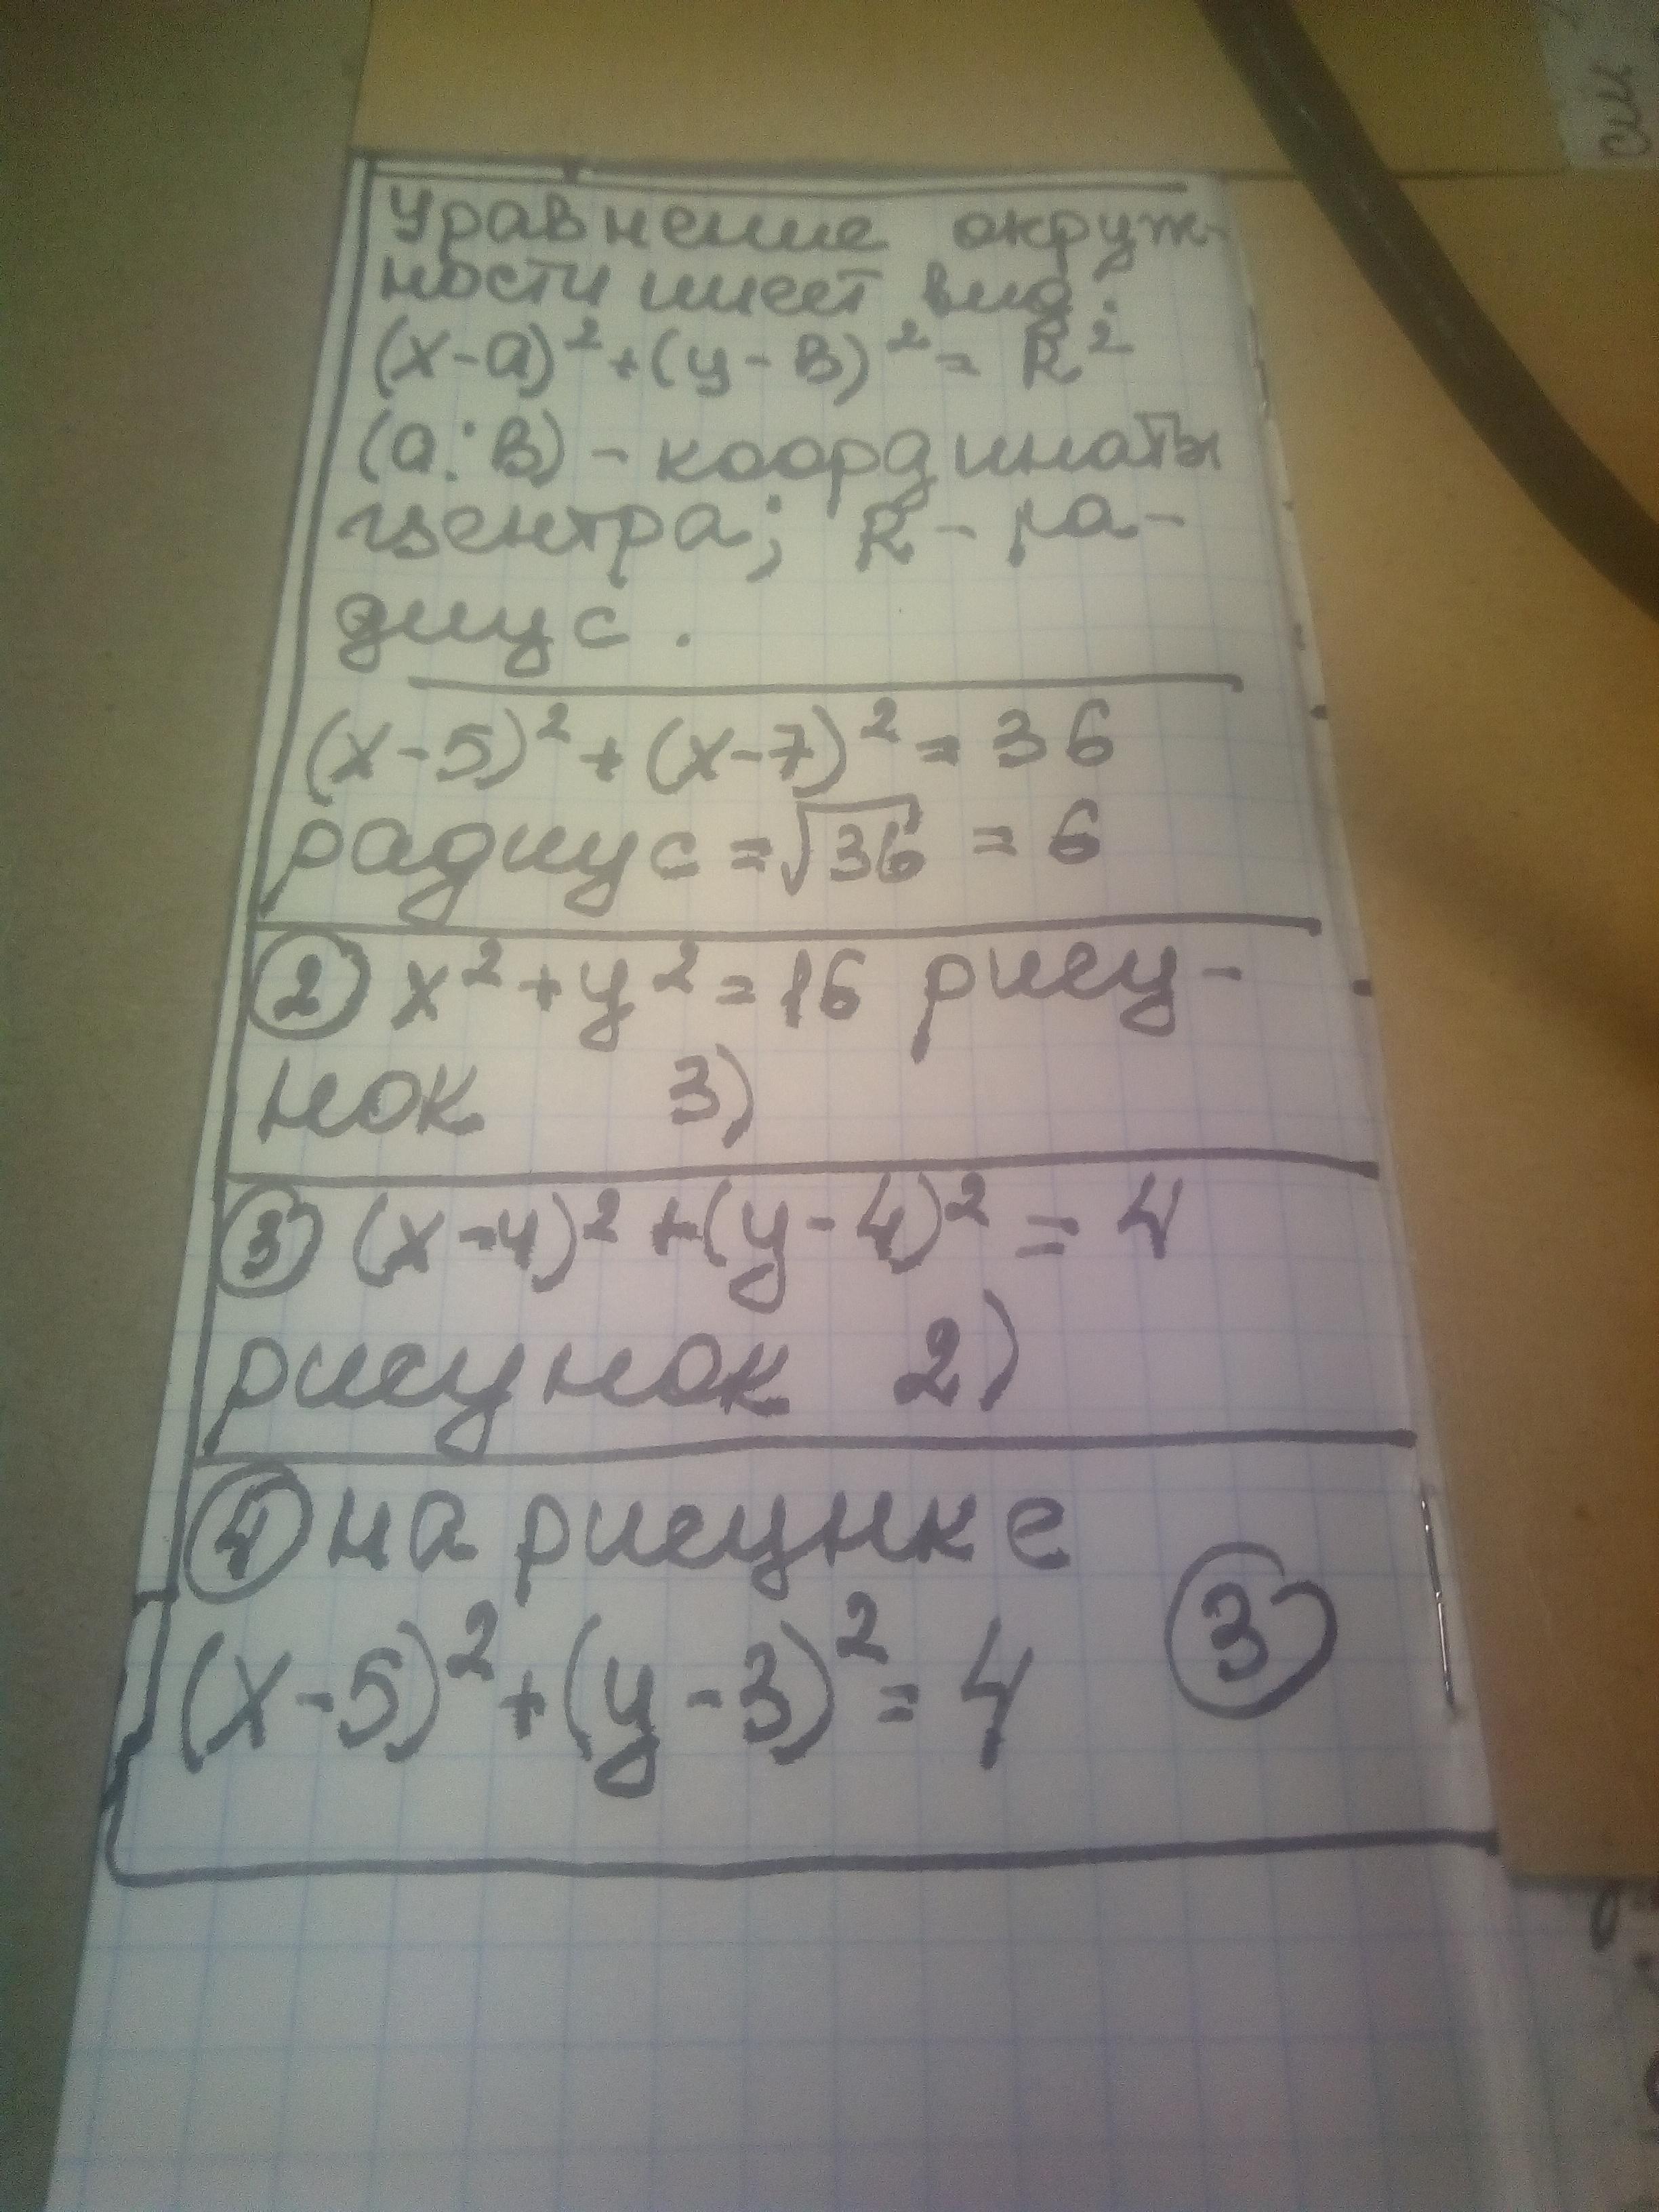 Уравнение окруж-
ности имеет вид:
(x-a)² + (y-в)² = R²
(a;в) - координаты
центра; R - ра-
диус.
(x-5)² + (x-7)² = 36
радиус = √36 = 6
② x² + y² = 16 рису-
нок 3)
③ (x-4)² + (y-4)² = 4
рисунок 2)
④ на рисунке
(x-5)² + (y-3)² = 4 ③